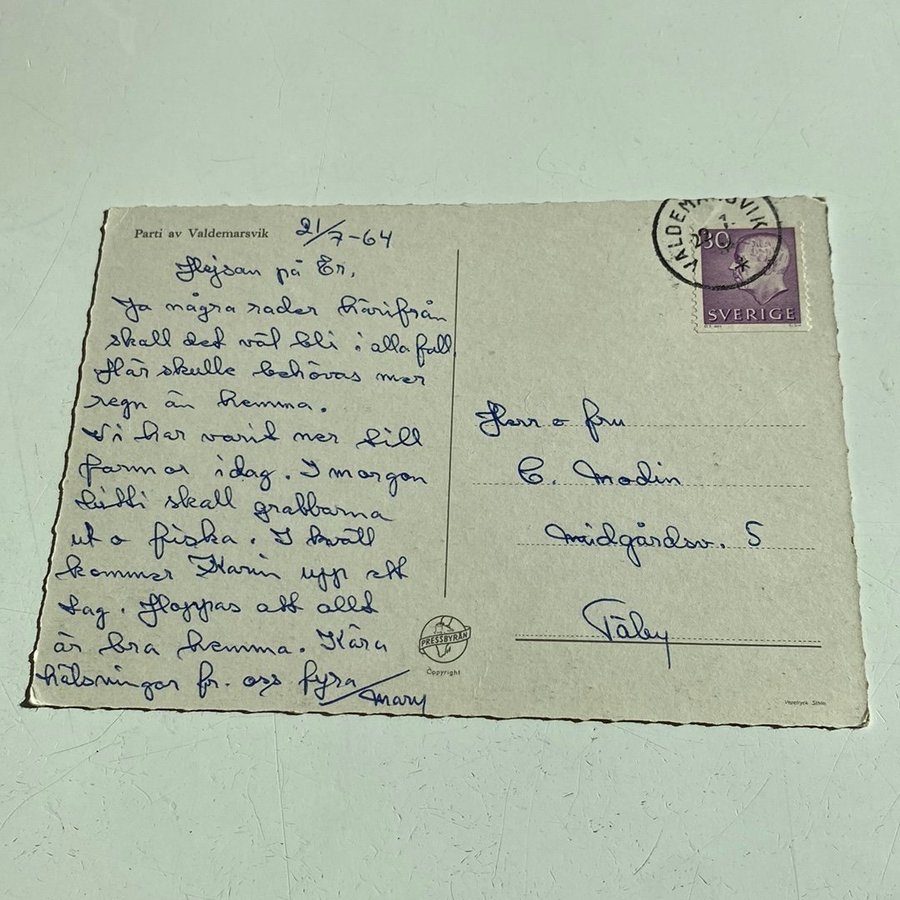 Parti av Valdemarsvik
21/7-64
Hejsan på Er,
Ja några rader härifrån
skall det väl bli i alla fall
Här skulle behövas mer
regn än hemma.
Vi har varit ner till
farmor idag. I morgon
bitti skall grabbarna
ut o fiska. I kväll
kommer Karin upp ett
tag. Hoppas att allt
är bra hemma. Kära
hälsningar fr. oss fyra
/Mary
PRESSBYRÅN
Copyright
VALDEMARSVIK
30
SVERIGE
Herr o fru
C. Modin
Midgårdsv. 5
Täby